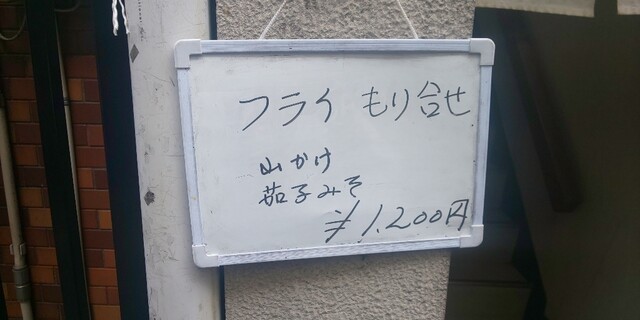 フライ もり合せ
山かけ
茄子みそ
¥1,200円